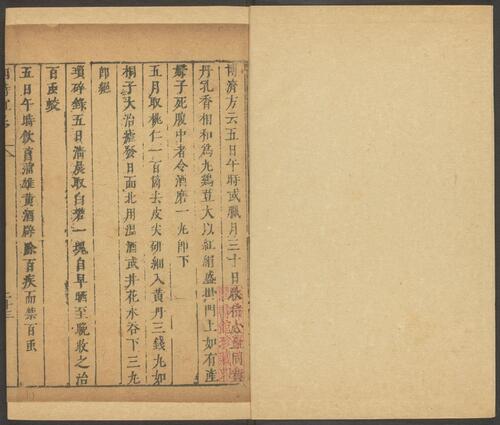 濟方云五日午時或臘月三十日
丹乳香相和為丸雞豆大以紅絹盛掛門上如有產
子死腹中者令酒磨一丸即下
五月取桃仁一百箇去皮尖研細入黃丹三錢丸如
桐子大治瘧發日面北用溫酒或井花水吞下三九
即絕
瑣碎錄五日清晨取白礬一塊自早晒至晚收之治
百蟲
五日午時飲菖蒲雄黃酒辟除百疾而禁百虫